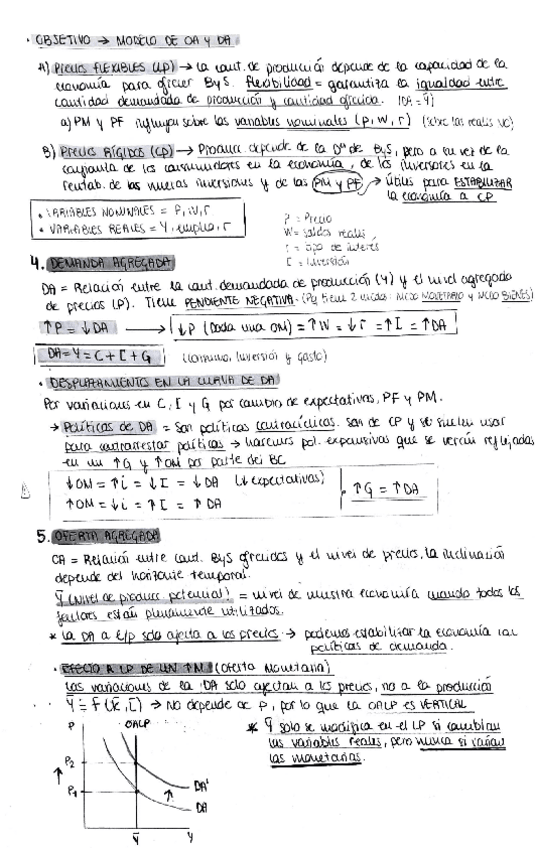 · OBJETIVO → MODELO DE OA y DA
A) PRECIOS FLEXIBLES (LP) → La cant. de producción depende de la capacidad de la
economía para ofrecer ByS. Flexibilidad = garantiza la igualdad entre
cantidad demandada de producción y cantidad ofrecida. (DA = Ȳ)
a) PM y PF influyen sobre las variables nominales (P, W, r) (sobre las reales NO)
B) PRECIOS RÍGIDOS (CP) → Produc. depende de la Dª de ByS, pero a su vez de la
confianza de los consumidores en la economía, de los inversores en la
rentab. de las nuevas inversiones y de las PM y PF → útiles para ESTABILIZAR
la economía a CP
• VARIABLES NOMINALES = P, W, r
• VARIABLES REALES = Y, empleo, r
P = Precio
W = saldos reales
r = tipo de interés
I = Inversión
4. DEMANDA AGREGADA
DA = Relación entre la cant. demandada de producción (Y) y el nivel agregado
de precios (P). Tiene PENDIENTE NEGATIVA. (Pq tiene 2 lados: MCDO MONETARIO y MCDO BIENES)
↑P = ↓DA → ↓P (Dada una OM) = ↑W = ↓r = ↑I = ↑DA
DA = Y = C + I + G (consumo, inversión y gasto)
· DESPLAZAMIENTO EN LA CURVA DE DA
Por variaciones en C, I y G por cambio de expectativas, PF y PM.
→ Políticas de DA = Son políticas contracíclicas. Son de CP y se suelen usar
para contrarrestar políticas → hacemos pol. expansivas que se verán reflejadas
en un ↑G y ↑OM por parte del BC
↓OM = ↑i = ↓I = ↓DA (↓expectativas)
↑OM = ↓i = ↑I = ↑DA
↑G = ↑DA
5. OFERTA AGREGADA
OA = Relación entre cant. ByS ofrecidos y el nivel de precios. La inclinación
depende del horizonte temporal.
Ȳ (Nivel de produc. potencial) = nivel de nuestra economía cuando todos los
factores están plenamente utilizados.
* La DA a c/p solo afecta a los precios → podemos estabilizar la economía con
políticas de demanda.
· EFECTO A LP DE UN ↑M (Oferta Monetaria)
Las variaciones de la DA solo afectan a los precios, no a la producción
Ȳ = f(K̄, L̄) → No depende de P, por lo que la OALP es VERTICAL
* Ȳ solo se modifica en el LP si cambian
las variables reales, pero nunca si varían
las monetarias.
P
OALP
P₂
P₁
DA'
DA
Ȳ
Y